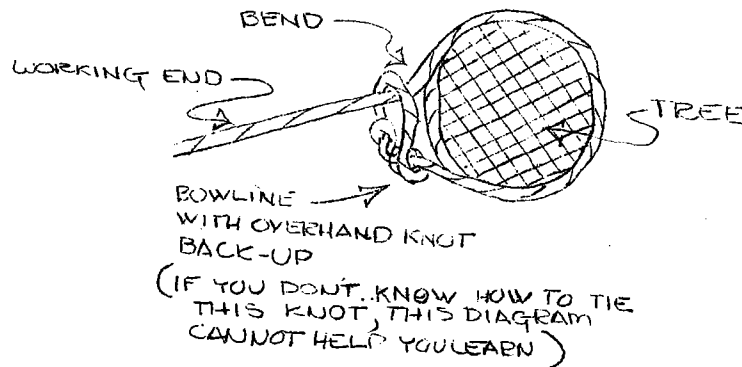 BEND
WORKING END
TREE
BOWLINE
WITH OVERHAND KNOT
BACK-UP
(IF YOU DON'T KNOW HOW TO TIE
THIS KNOT, THIS DIAGRAM
CANNOT HELP YOU LEARN)